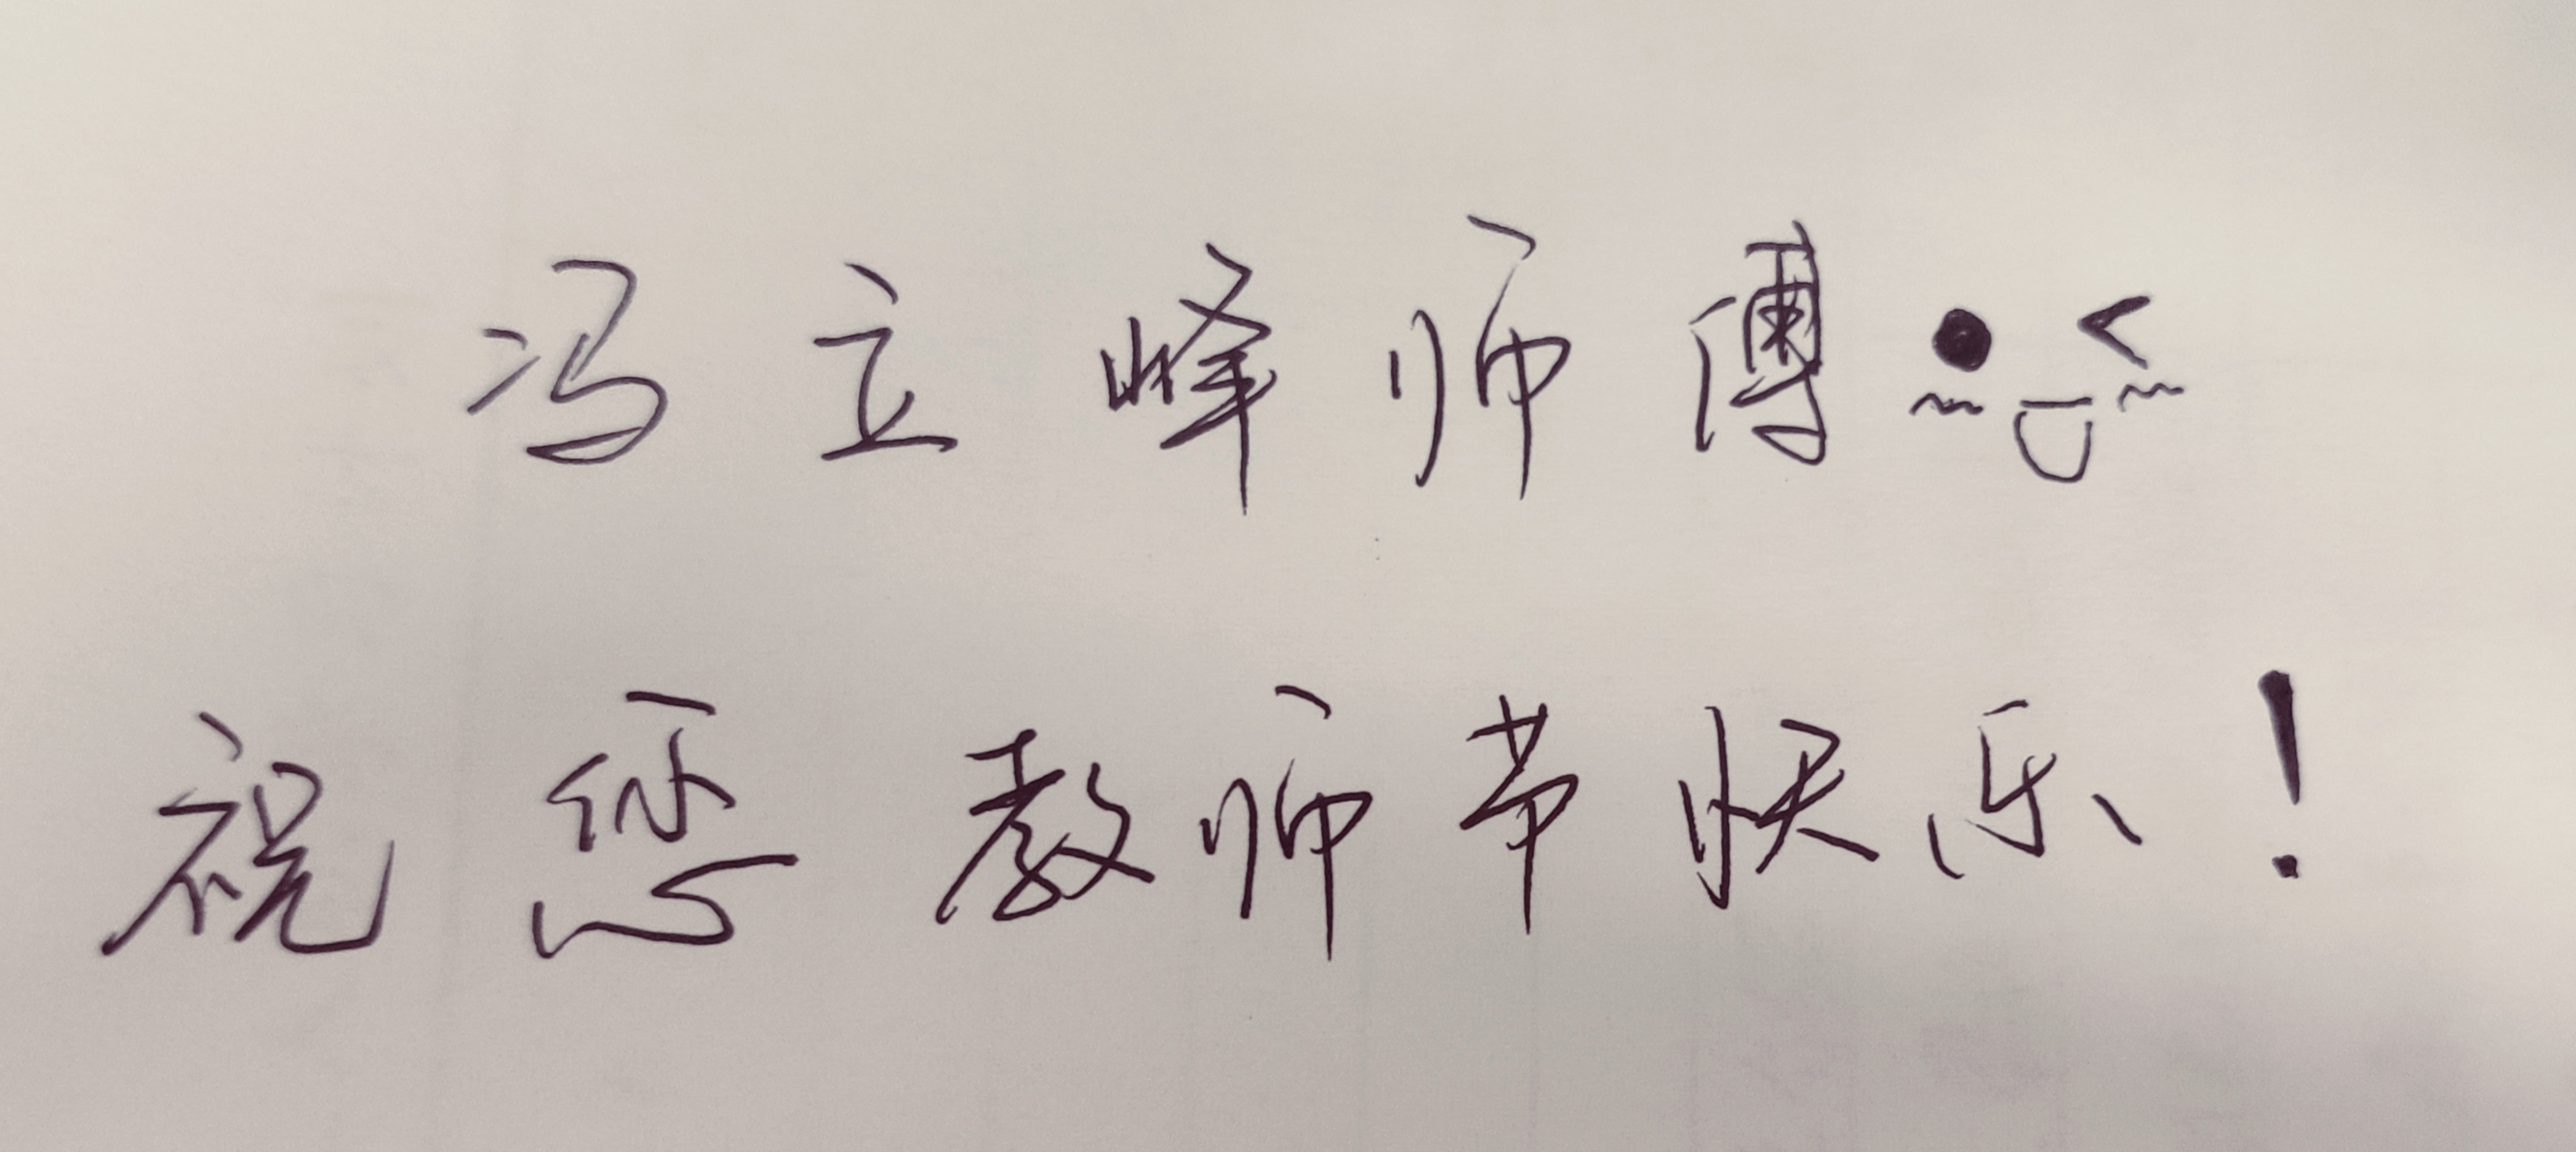 冯立峰师傅
祝您教师节快乐！